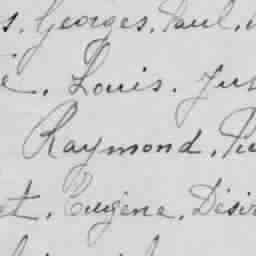 Georges. Paul.
Louis.
Raymond.
Eugène. Désir